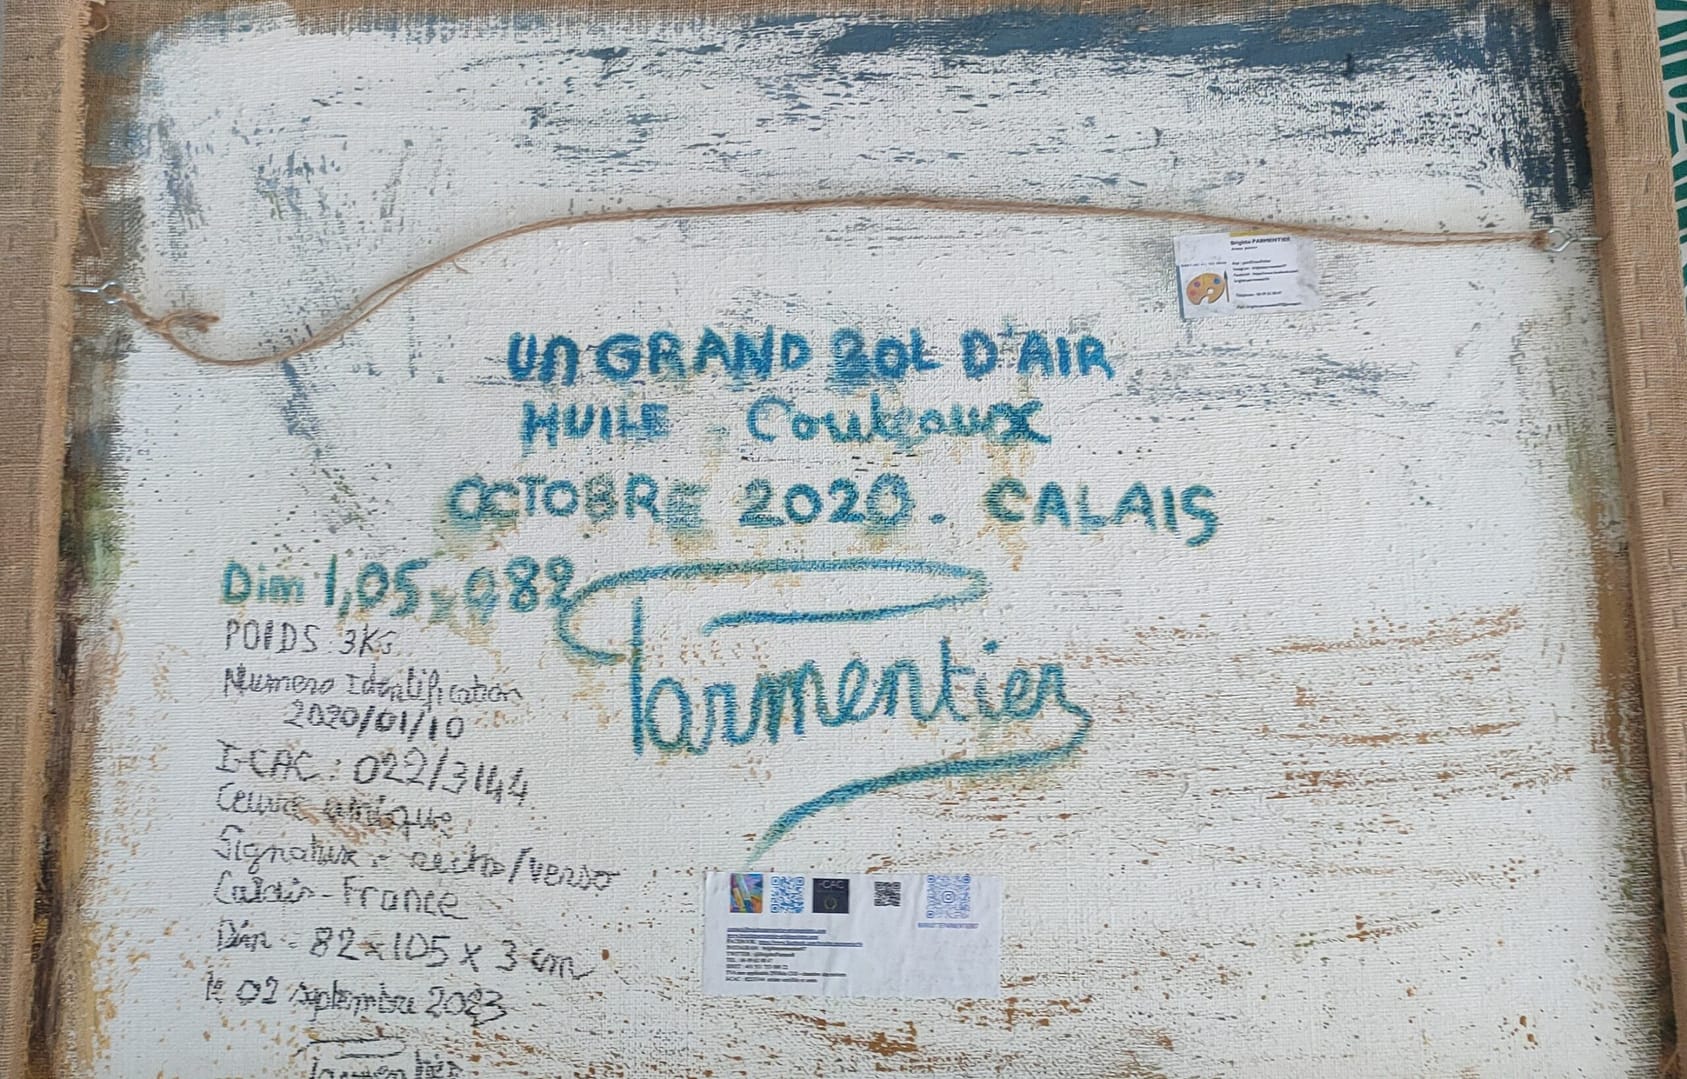 Brigitte PARMENTIER
UN GRAND BOL D'AIR
HUILE Couteaux
OCTOBRE 2020. CALAIS
Dim 1,05 x 0 82
Parmentier
POIDS : 3KG
Numero Identification
2020/01/10
I-CAC : 022/3144
Oeuvre unique
Signature : recto/verso
Calais - France
Dim : 82 x 105 x 3 cm
le 02 septembre 2023
Parmentier
CAC